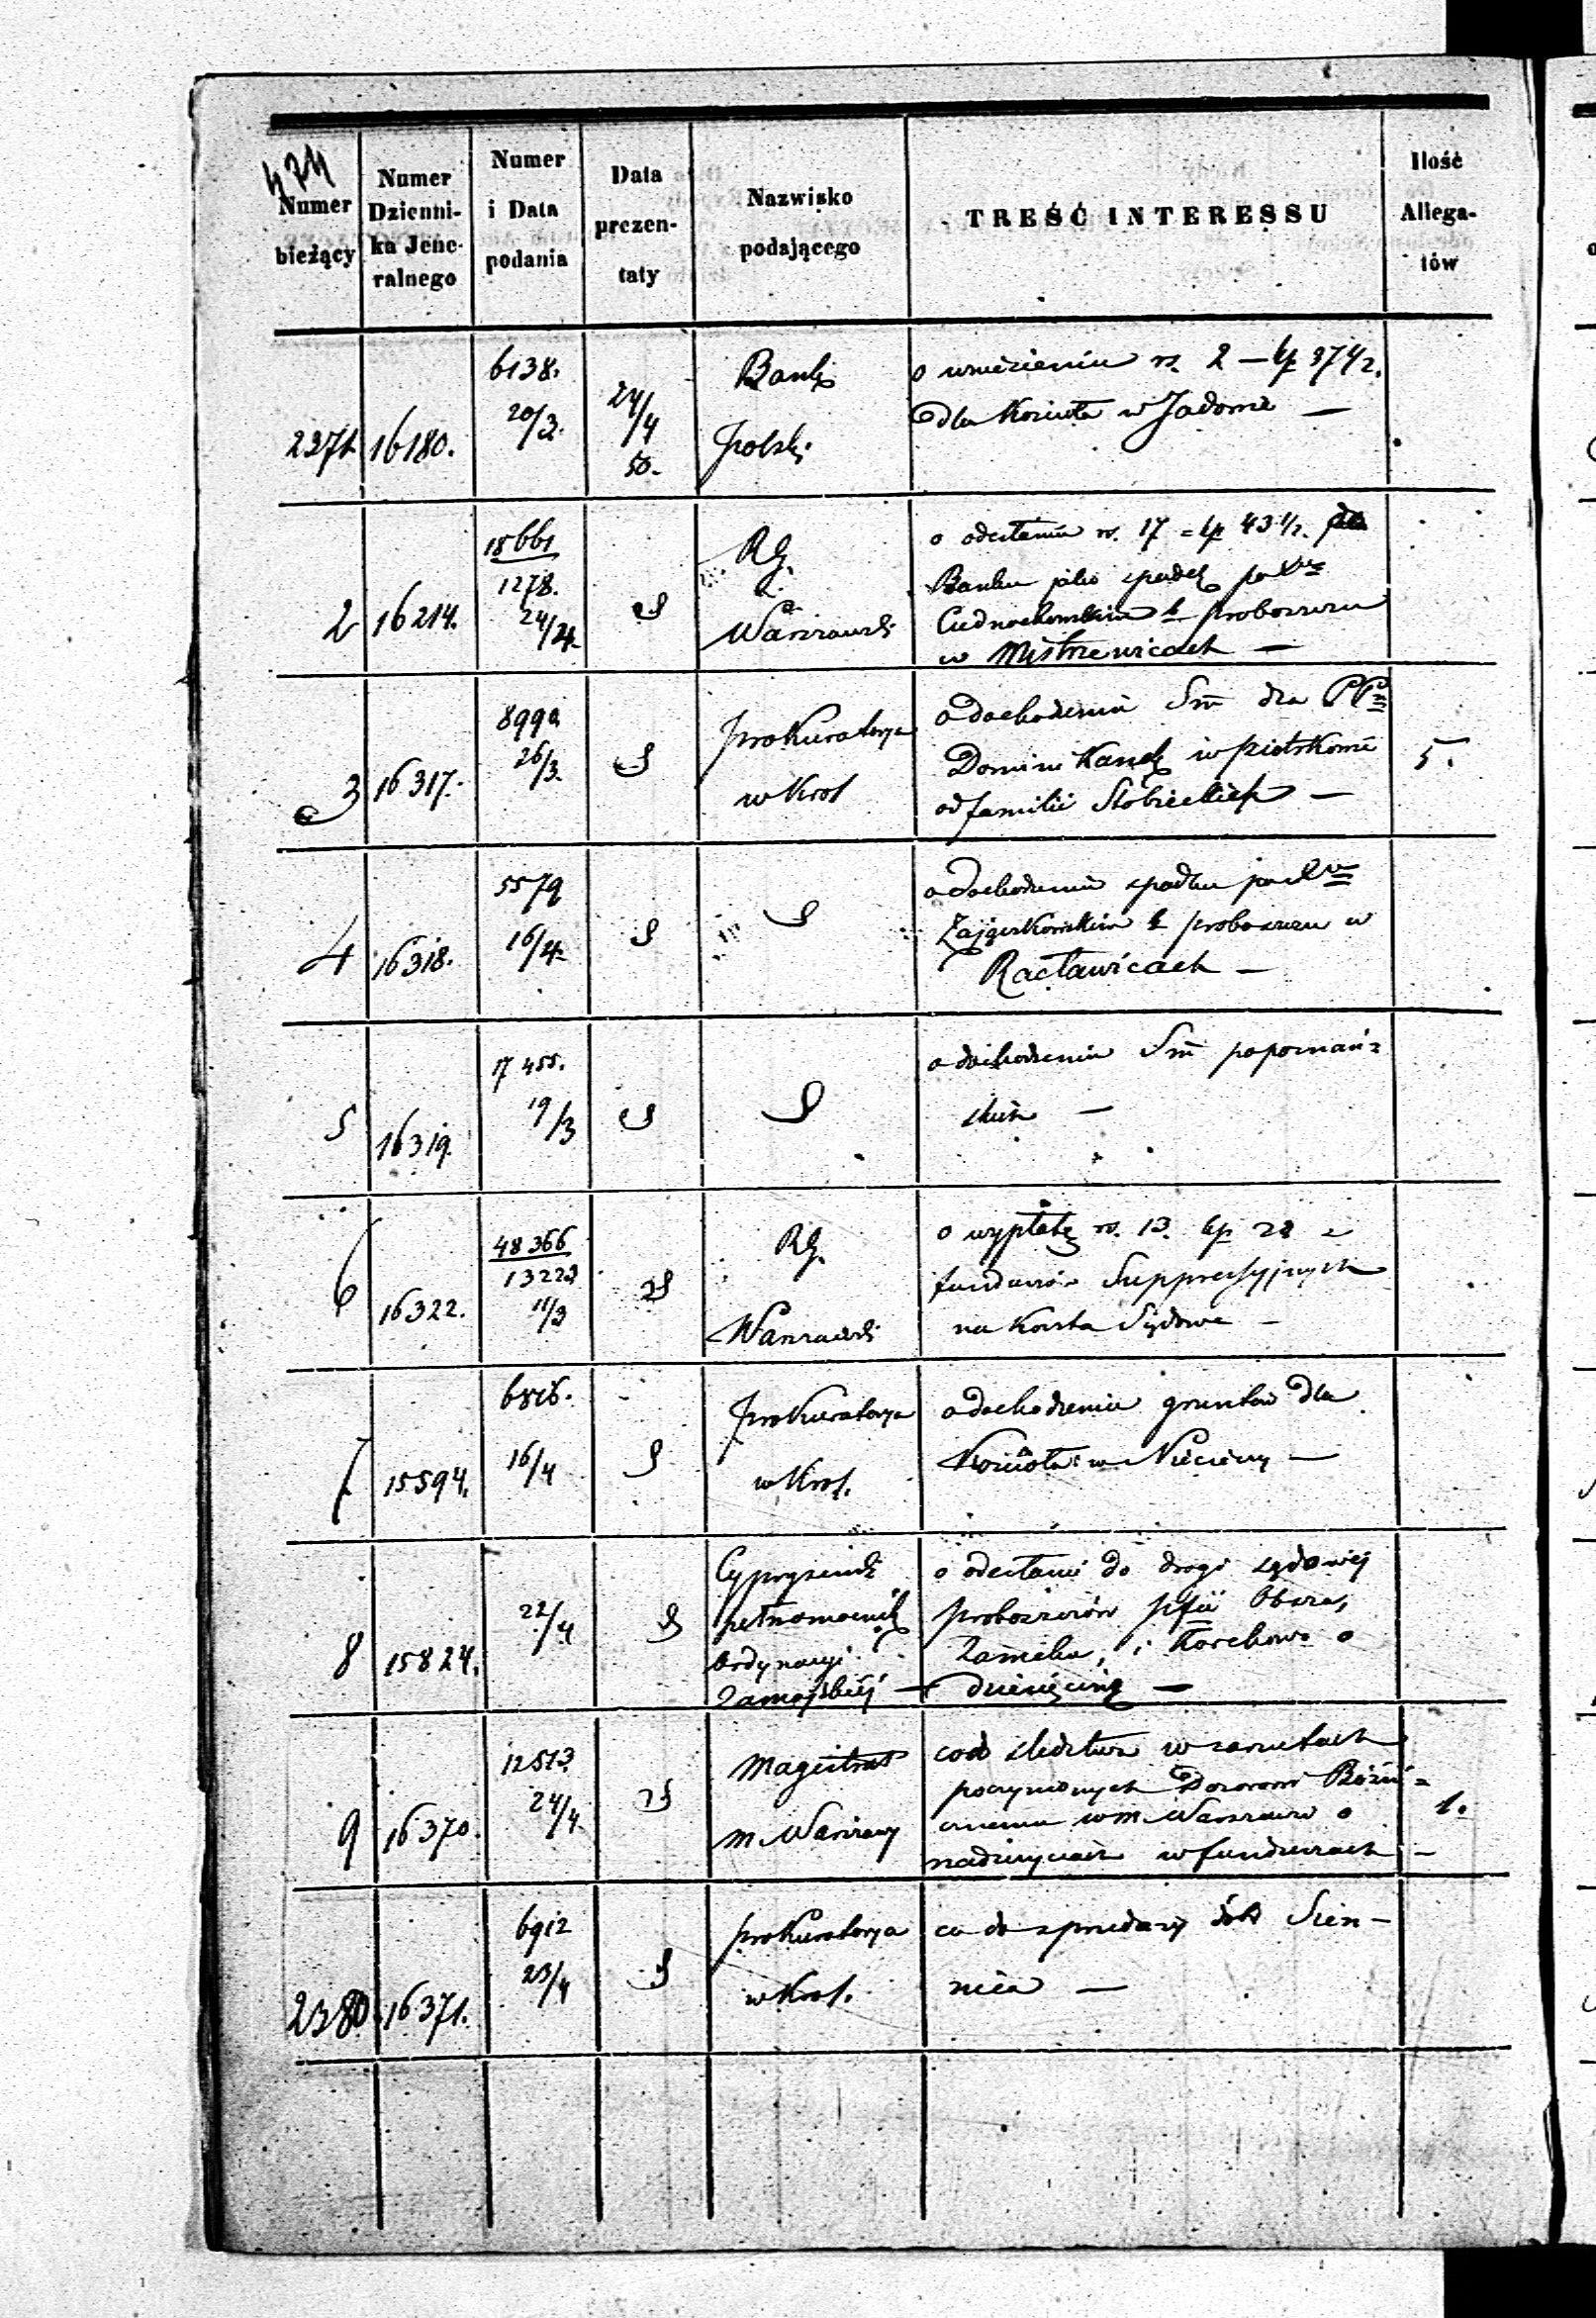 474
Numer
bieżący
Numer
Dzienni-
ka Jene-
ralnego
Numer
i Data
podania
Data
prezen-
taty
Nazwisko
podającego
TREŚĆ INTERESSU
Ilość
Allega-
tów
2371
16180.
6138.
20/3.
24/4
50.
Bank
Polski
o wniesieniu rs. 2 – kp 37 1/2.
dla Kościoła w Jadowie —
2
16214.
18661
1278.
24/4
RG.
Warszawski
o odesłaniu rs. 17 = kp 43 1/2. do
Banku jako spadek po
proboszczu
w Mistrzewicach —
3
16317.
8990
26/3.
Prokuratorya
w Król
o dochodzeniu Sm dla PP
Dominikanek w Piotrkowie
od familii Stobieckich —
5.
4
16318.
5579
16/4.
o dochodzeniu spadku po
proboszczu w
Racławicach —
5
16319.
17455.
19/3
o dochodzeniu Sm popoznań=
skich —
6
16322.
48366
13223
11/3
RG.
Warszawski
o wypłatę rs. 13. kp 28 z
funduszów Suppressyjnych
na koszta Sądowe —
7
15594.
16/4
Prokuratorya
w Król.
o dochodzenie gruntów dla
Kościoła w Niecieczy —
8
15824.
22/4
pełnomocnik
Ordynacyi
Zamojskiej —
o odesłanie do drogi sądowej
proboszczów
Zamchu, i Korchowa o
dziesięcinę —
9
16370.
12513
24/4.
Magistrat
m Warszawy
cod śledztwa w zarzutach
poczynionych Dozorowi Bożni=
cznemu w m Warszawie o
nadużyciach w funduszach —
1.
2380
16371.
6912
23/4
Prokuratorya
w Król.
co do sprzedaży dóbr Sien-
nica —